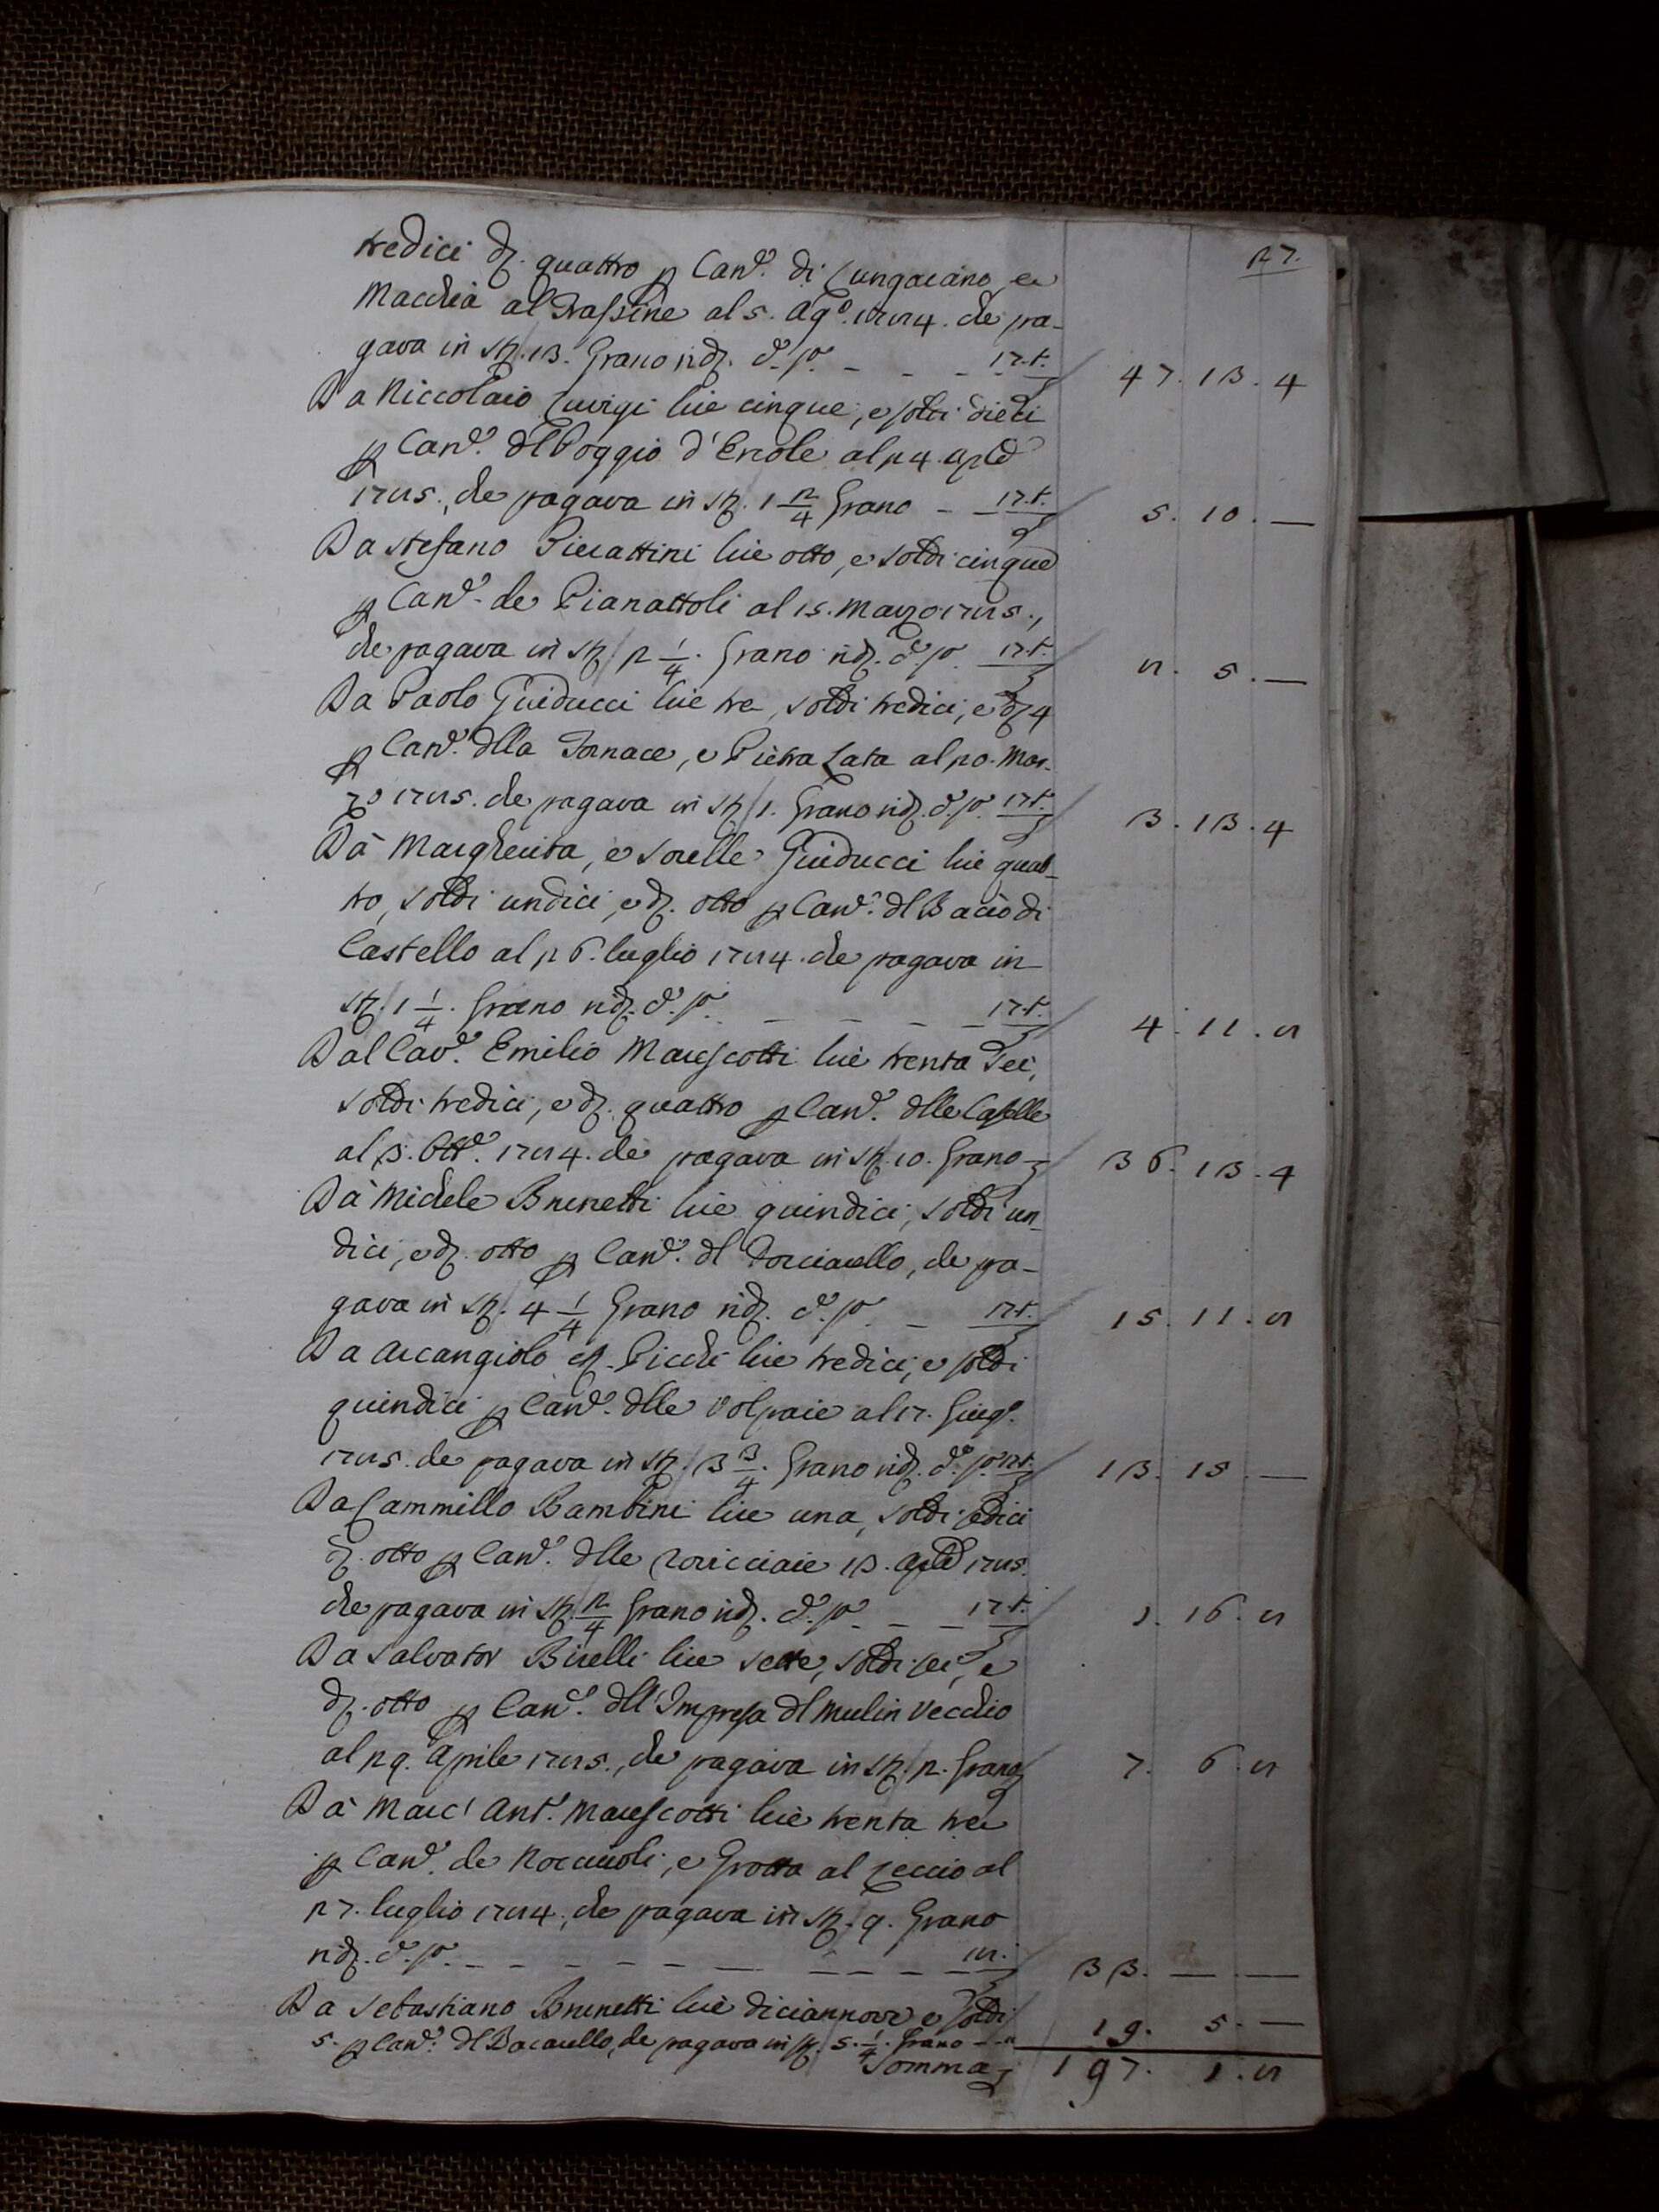 27.
tredici d. quattro p Can.e di Lungaiano, e
Macchia al Frassine al 5. Ag.o 1784. che pa-
gava in st. 13. Grano rid. d.o p.o - - - 17.t. 47. 13. 4
Da Niccolaio Luvigi lire cinque, e soldi dieci
p Can.e dl Poggio d'Ercole al 24. aple
1785., che pagava in st. 1 2/4 Grano - 17.t. 5. 10. —
Da Stefano Picrattini lire otto, e soldi cinque
p Can.e de Pianattoli al 15. Marzo 1785.,
che pagava in st. 2 1/4. Grano rid. d.o p.o 17.t. 8. 5. —
Da Paolo Guiducci lire tre, soldi tredici, e d 4
p Can.e dlla Fornace, e Pietra Lata al 20. Mar-
zo 1785. che pagava in st. 1. Grano rid. d.o p.o 17.t. 3. 13. 4
Dà Margherita, e sorelle Guiducci lire quat-
tro, soldi undici, e d. otto p Can.e dl Bacìo di
Castello al 26. luglio 1784. che pagava in
st. 1 1/4. Grano rid. d.o p.o - - - - 17.t. 4. 11. 8
Dal Cav.e Emilio Marescotti lire trenta sei,
soldi tredici, e d. quattro p Can.e dlle Caselle
al 3. Ott.e 1784. che pagava in st. 10. Grano 36. 13. 4
Dà Michele Brunetti lire quindici, soldi un-
dici, e d. otto p Can.e dl Porciarello, che pa-
gava in st. 4 1/4 Grano rid. d.o p.o - 17.t. 15. 11. 8
Da Arcangiolo Picchi lire tredici, e soldi
quindici p Can.e dlle Volpaie al 17. Giug.o
1785. che pagava in st. 3 3/4. Grano rid. d.o p.o 17.t. 13. 15. —
Da Cammillo Bambini lire una, soldi sedici
d. otto p Can.e dlle 13. aple 1785.
che pagava in st. 2/4 Grano rid. d.o p.o - - 17.t. 1. 16. 8
Da Salvator Birelli lire sette, soldi sei, e
d. otto p Can.e dll'Impresa dl Mulin Vecchio
al 29. Aprile 1785., che pagava in st. 2. Grano 7. 6. 8
Dà Marc'Ant.o Marescotti lire trenta tre
p Can.e de Nocciuoli, e Grotta al Leccio al
27. luglio 1784., che pagava in st. 9. Grano
rid. d.o p.o - - - - - - - - - 18. 33. — —
Da Sebastiano Brunetti lire diciannove e soldi
5. p Can.e dl Bacarello, che pagava in st. 5. 1/4. Grano - - 19. 5. —
Somma 197. 1. 8